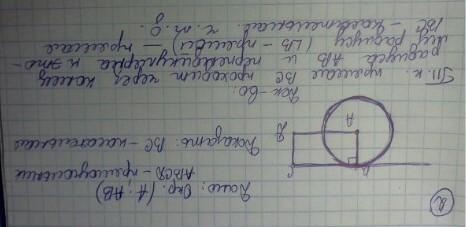 2)
Дано: Окр. (A; AB)
ABCD - прямоугольник
Доказать: BC - касательная
A
B
C
Док-во:
Т. к. прямая BC проходит через конец
радиуса AB и перпендикулярна к это-
му радиусу (∠B - прямой) — прямая
BC - касательная. ч. т. д.